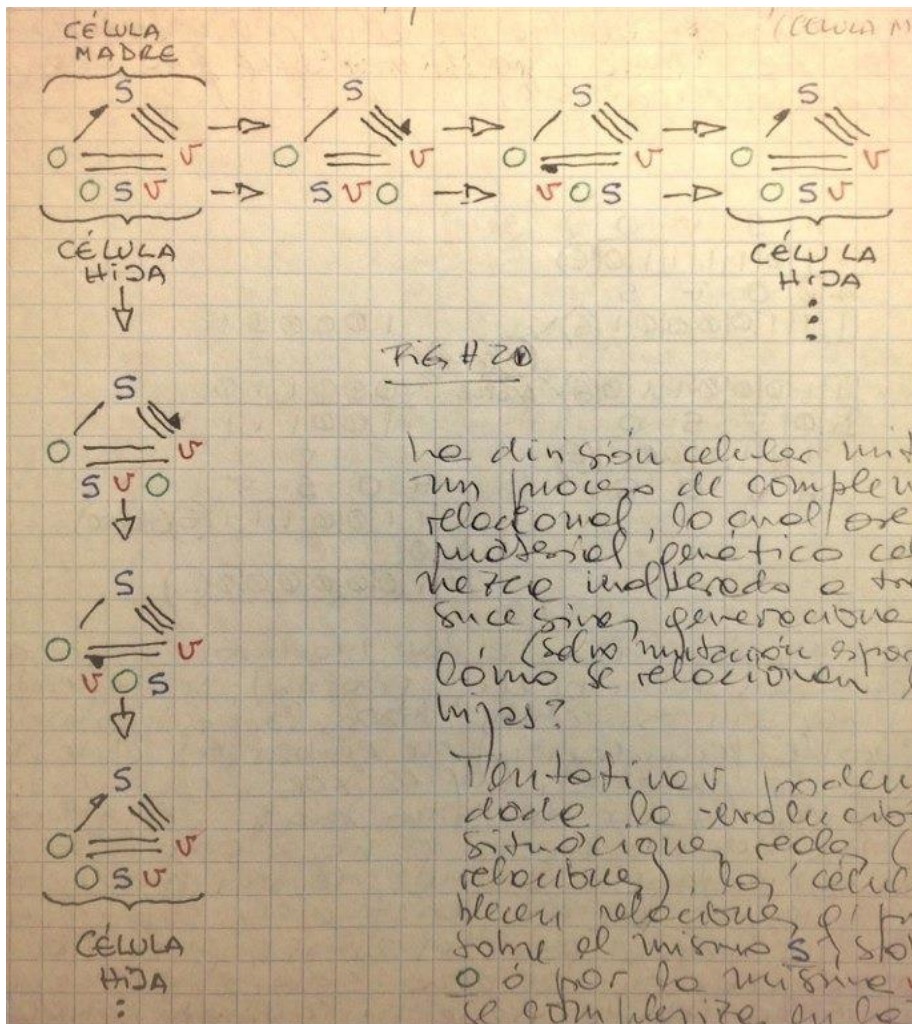 CÉLULA
MADRE
(CELULA M
S S S S
O v O v O v O v
O S v S v O v O S O S v
CÉLULA
HIJA
CÉLULA
HIJA
FIG # 20
S
O v
S v O
S
O v
v O S
S
O v
O S v
CÉLULA
HIJA
La división celular mit
un proceso de complem
relacional, lo cual ase
material genético cel
nezca inalterado a tra
sucesivas generacione
(salvo mutación espor
Cómo se relacionan l
hijas?
Tentativas poden
dada la evolucio
situaciones reales (
relaciones), las célul
blecen relaciones
sobre el mismo S,
O ó por la misma v
se complejiza en la